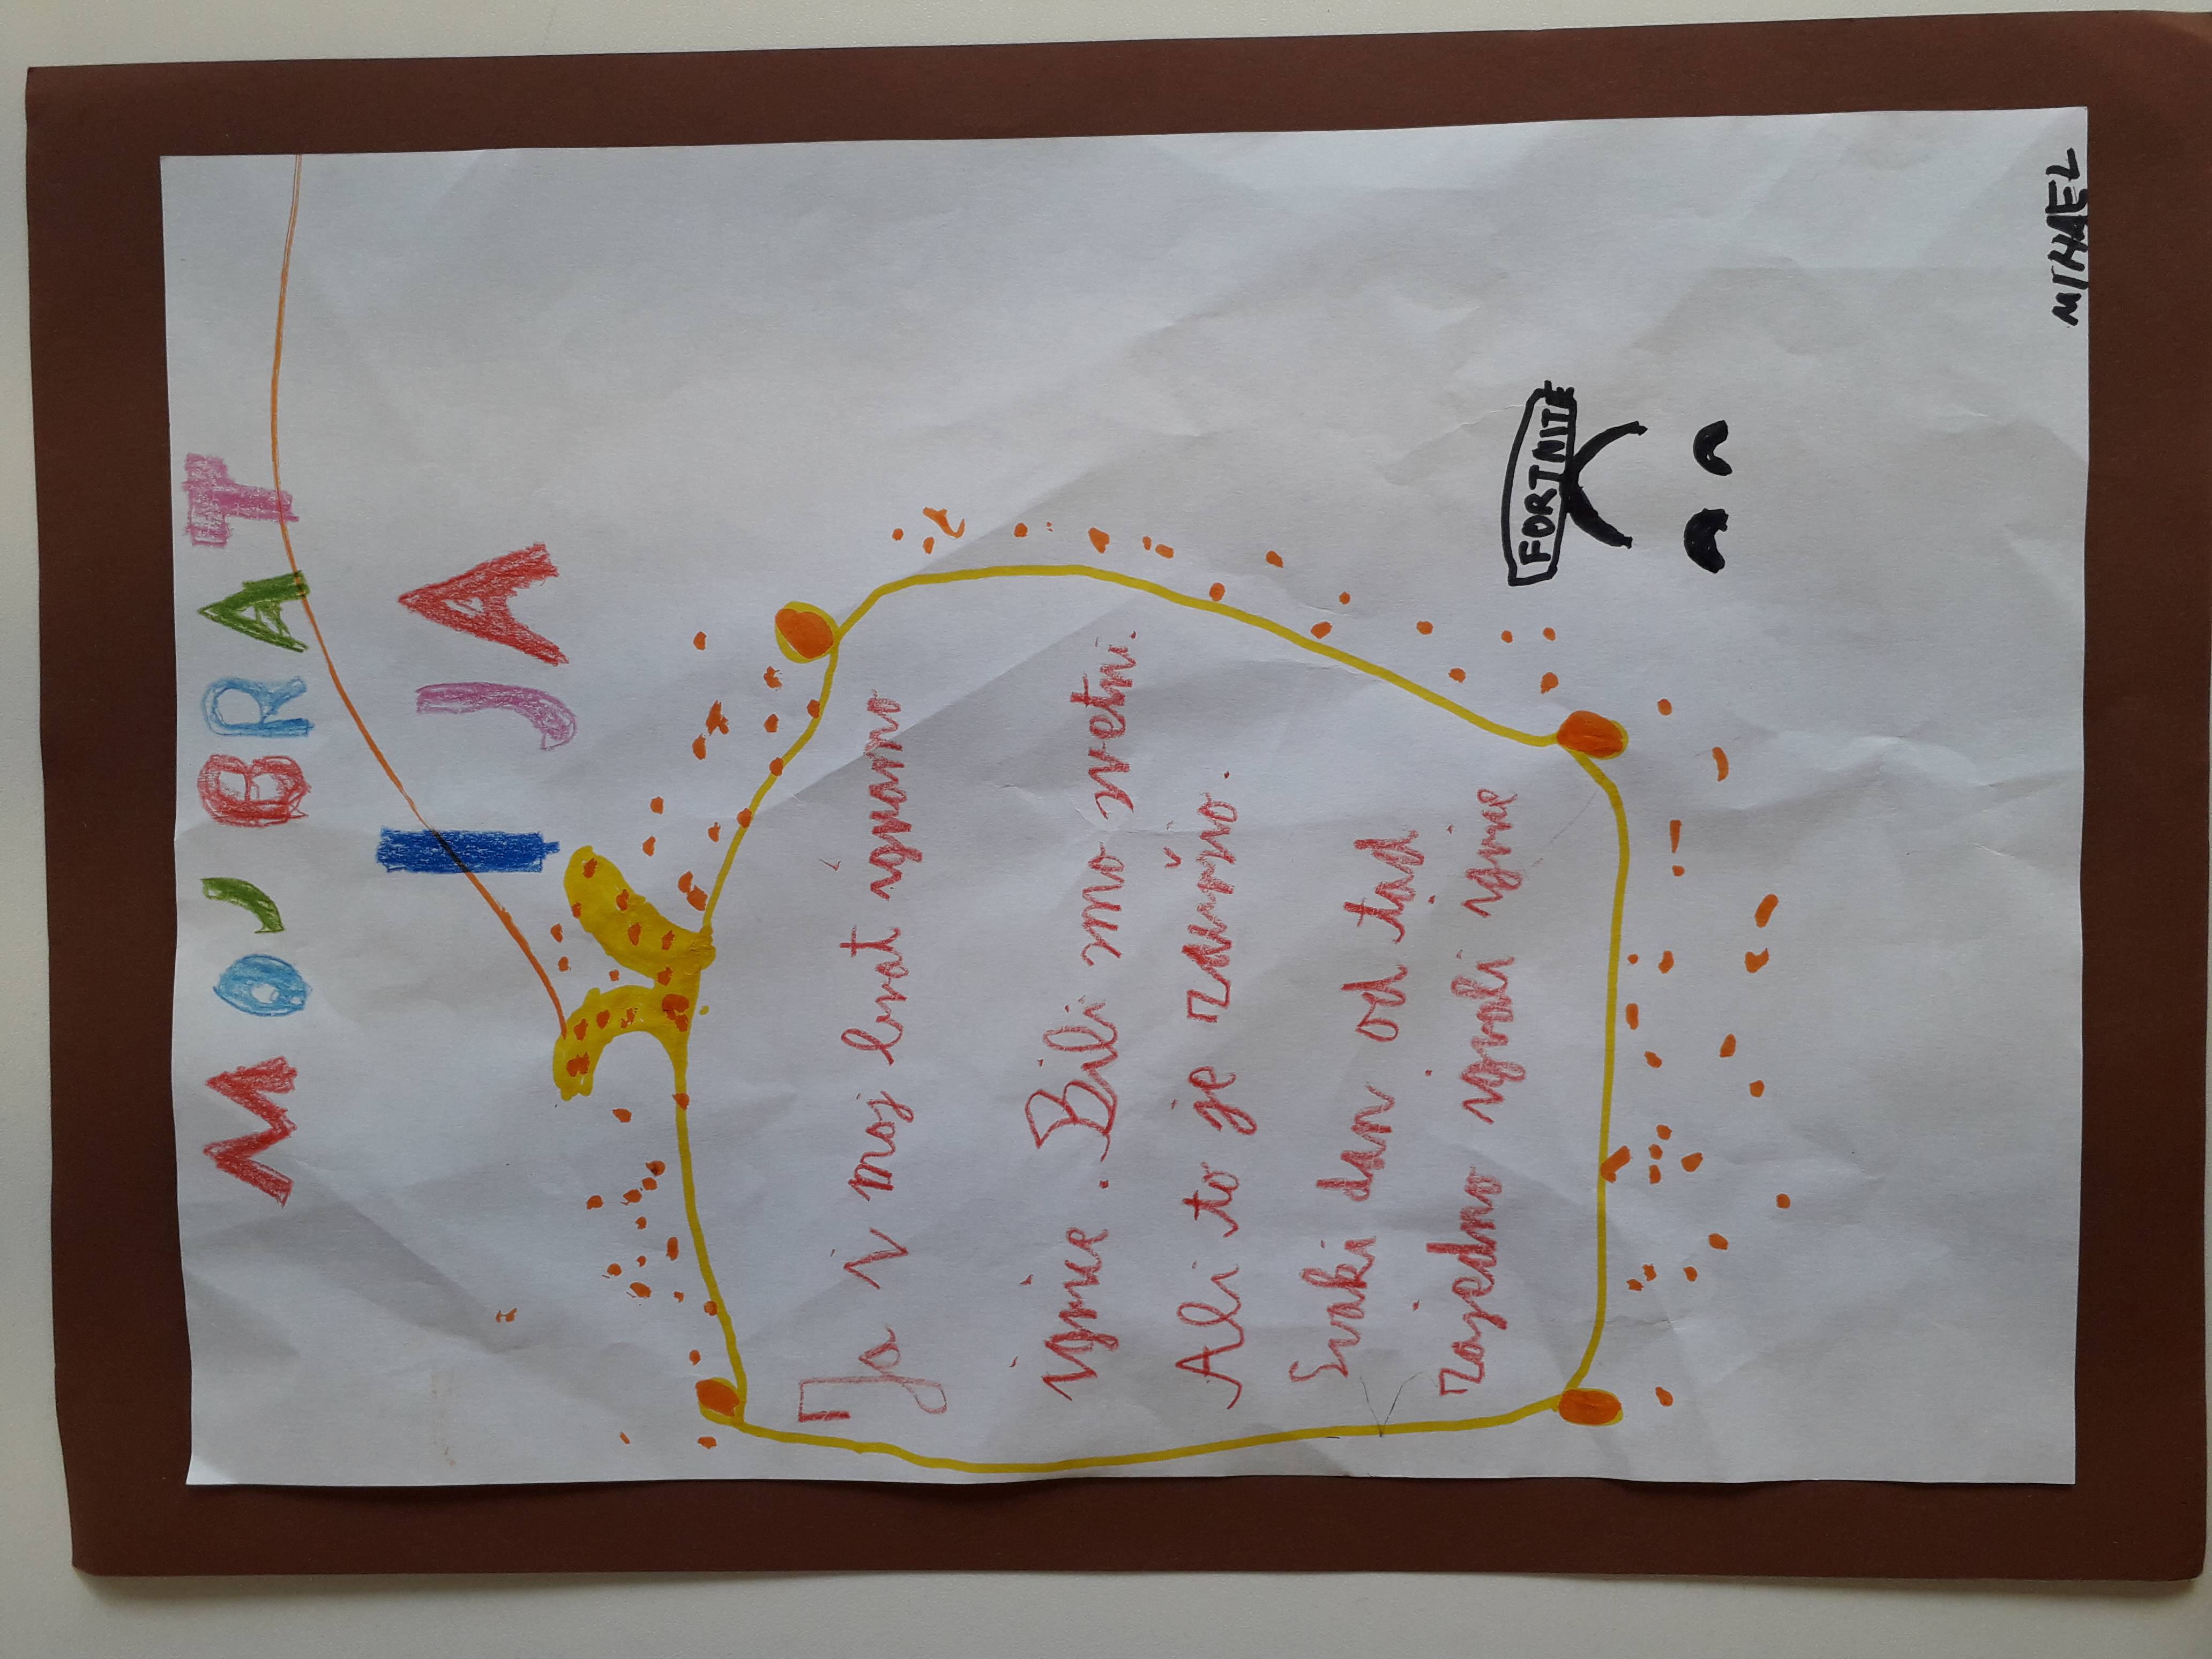 MOJ BRAT
I JA
Ja i moj brat igramo
igrice. Bili smo sretni.
Ali to je završio.
Svaki dan od tad
zajedno igrali igrice
FORTNITE
MIHAEL